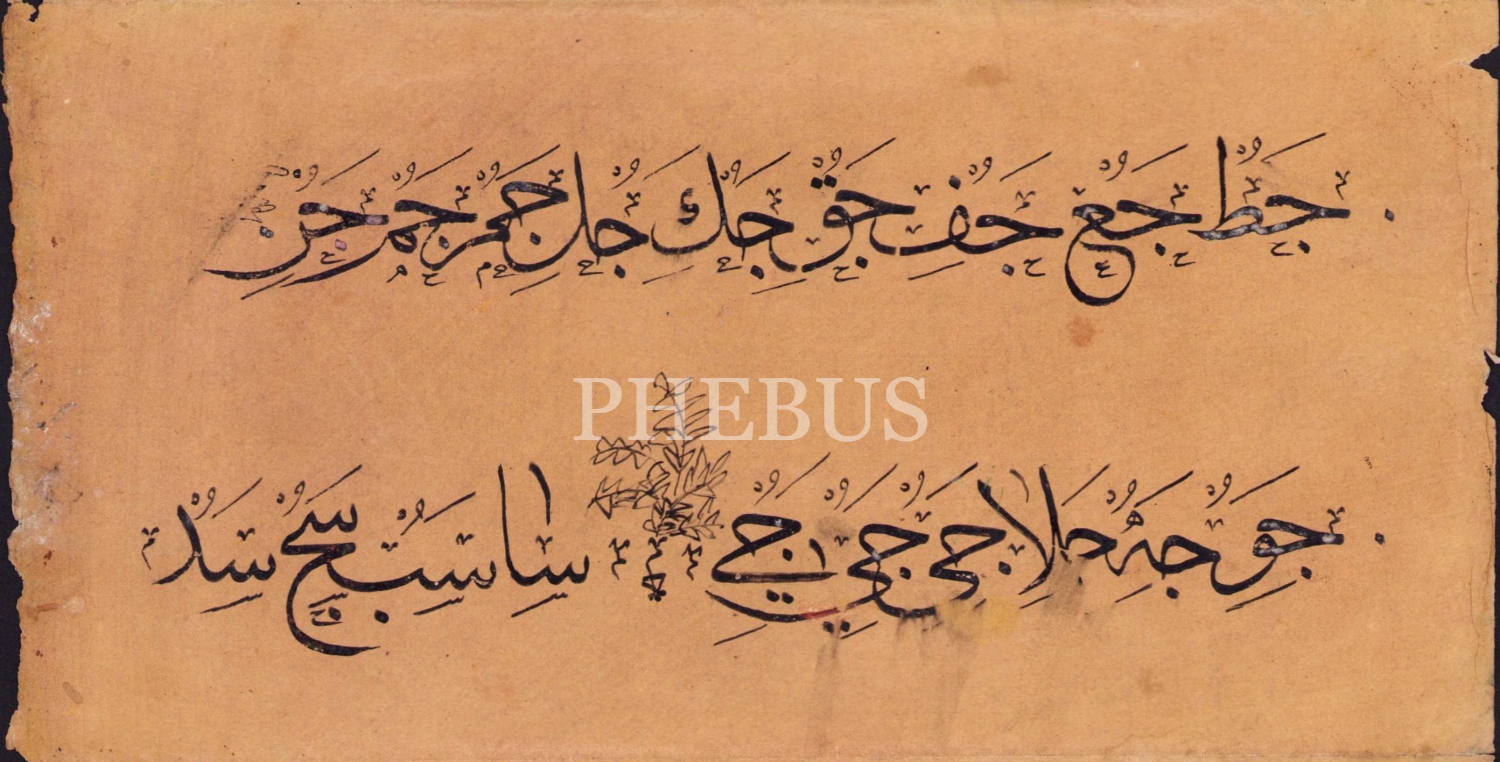 جط جع جف جق جك جل جم جمر جن
PHEBUS
جو جه جلا جى جى جے سا سب سج سد